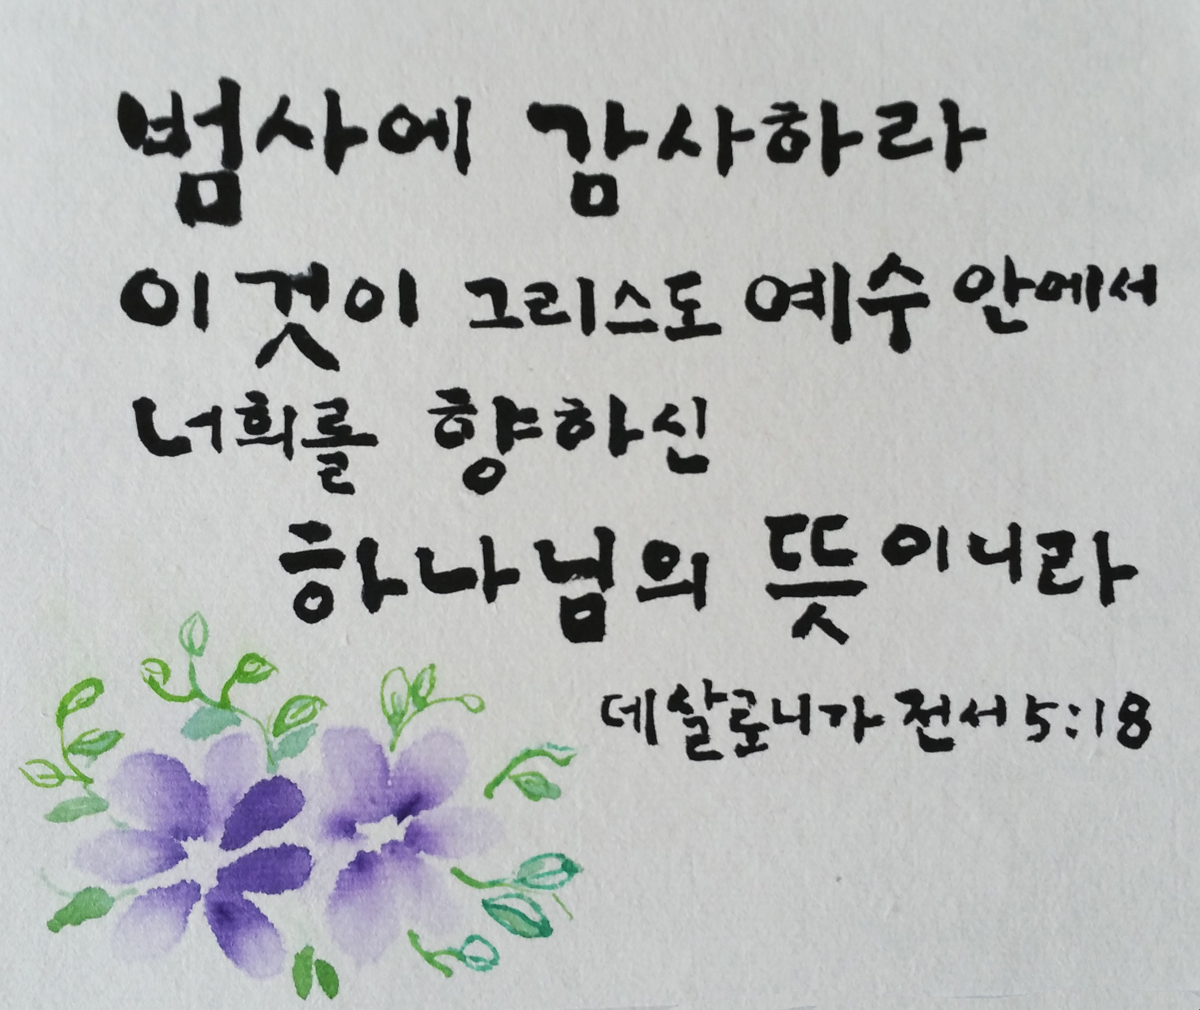 범사에 감사하라
이것이 그리스도 예수 안에서
너희를 향하신
하나님의 뜻이니라
데살로니가 전서 5:18